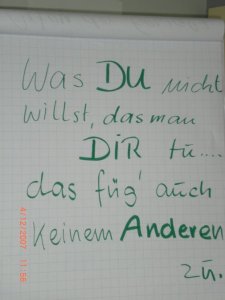 Was DU nicht
willst, das man
DIR tu....
das füg' auch
Keinem Anderen
zu.
4/12/2007 11:58